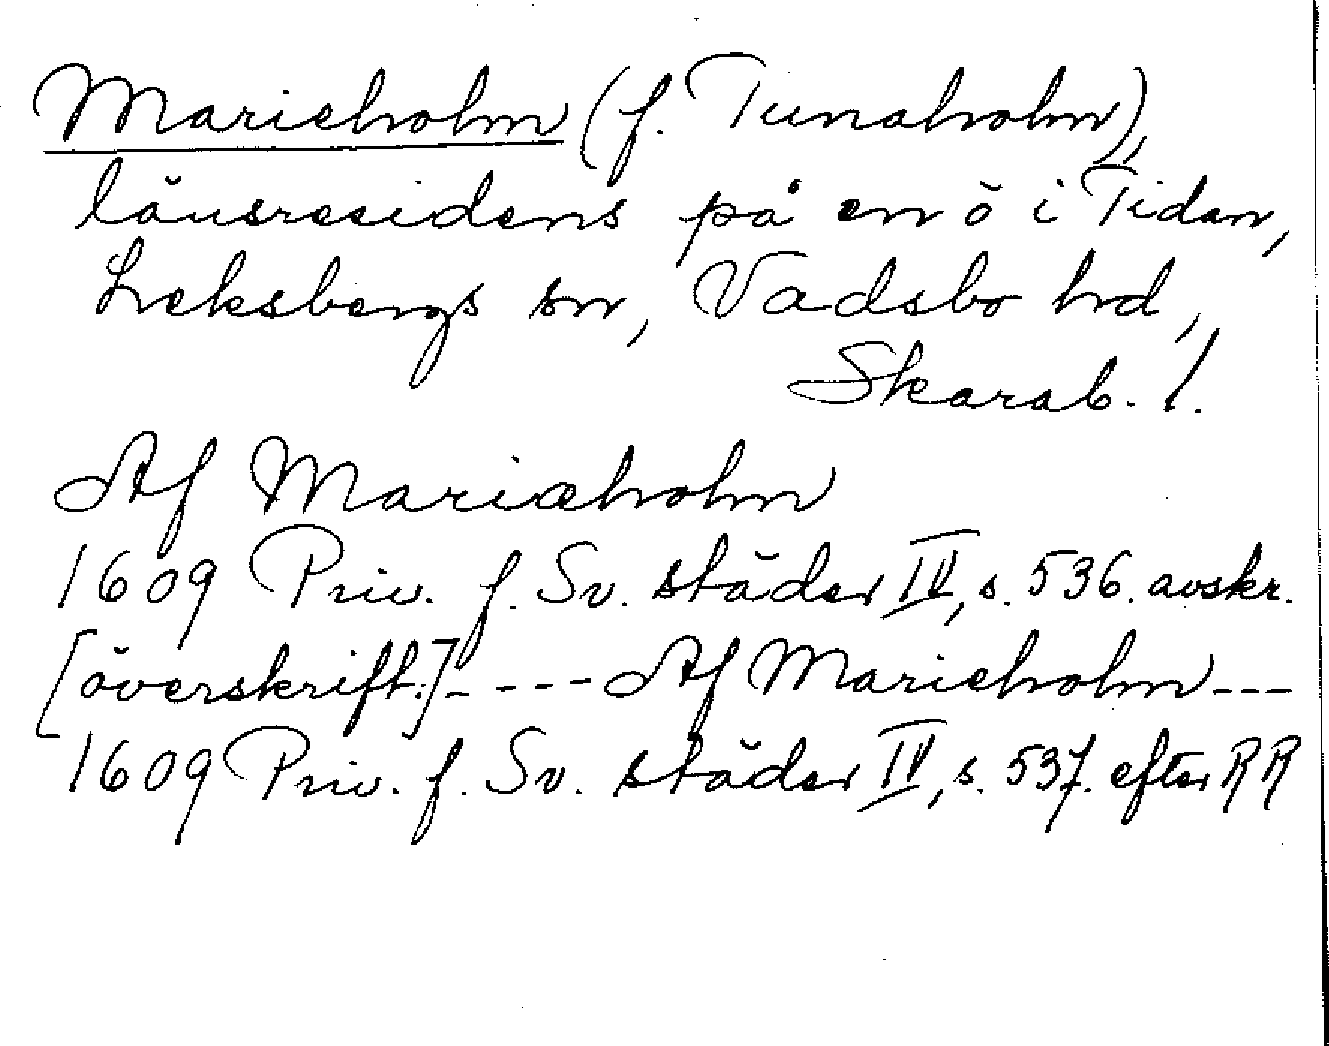 Marieholm (f. Tunaholm),
länsresidens på en ö i Tidan,
Leksbergs sn, Vadsbo hd,
Skarab. l.
Af Mariæholm
1609 Priv. f. Sv. städer IV, s. 536. avskr.
[överskrift:] - - - - Af Marieholm - - -
1609 Priv. f. Sv. städer IV, s. 537. efter RR